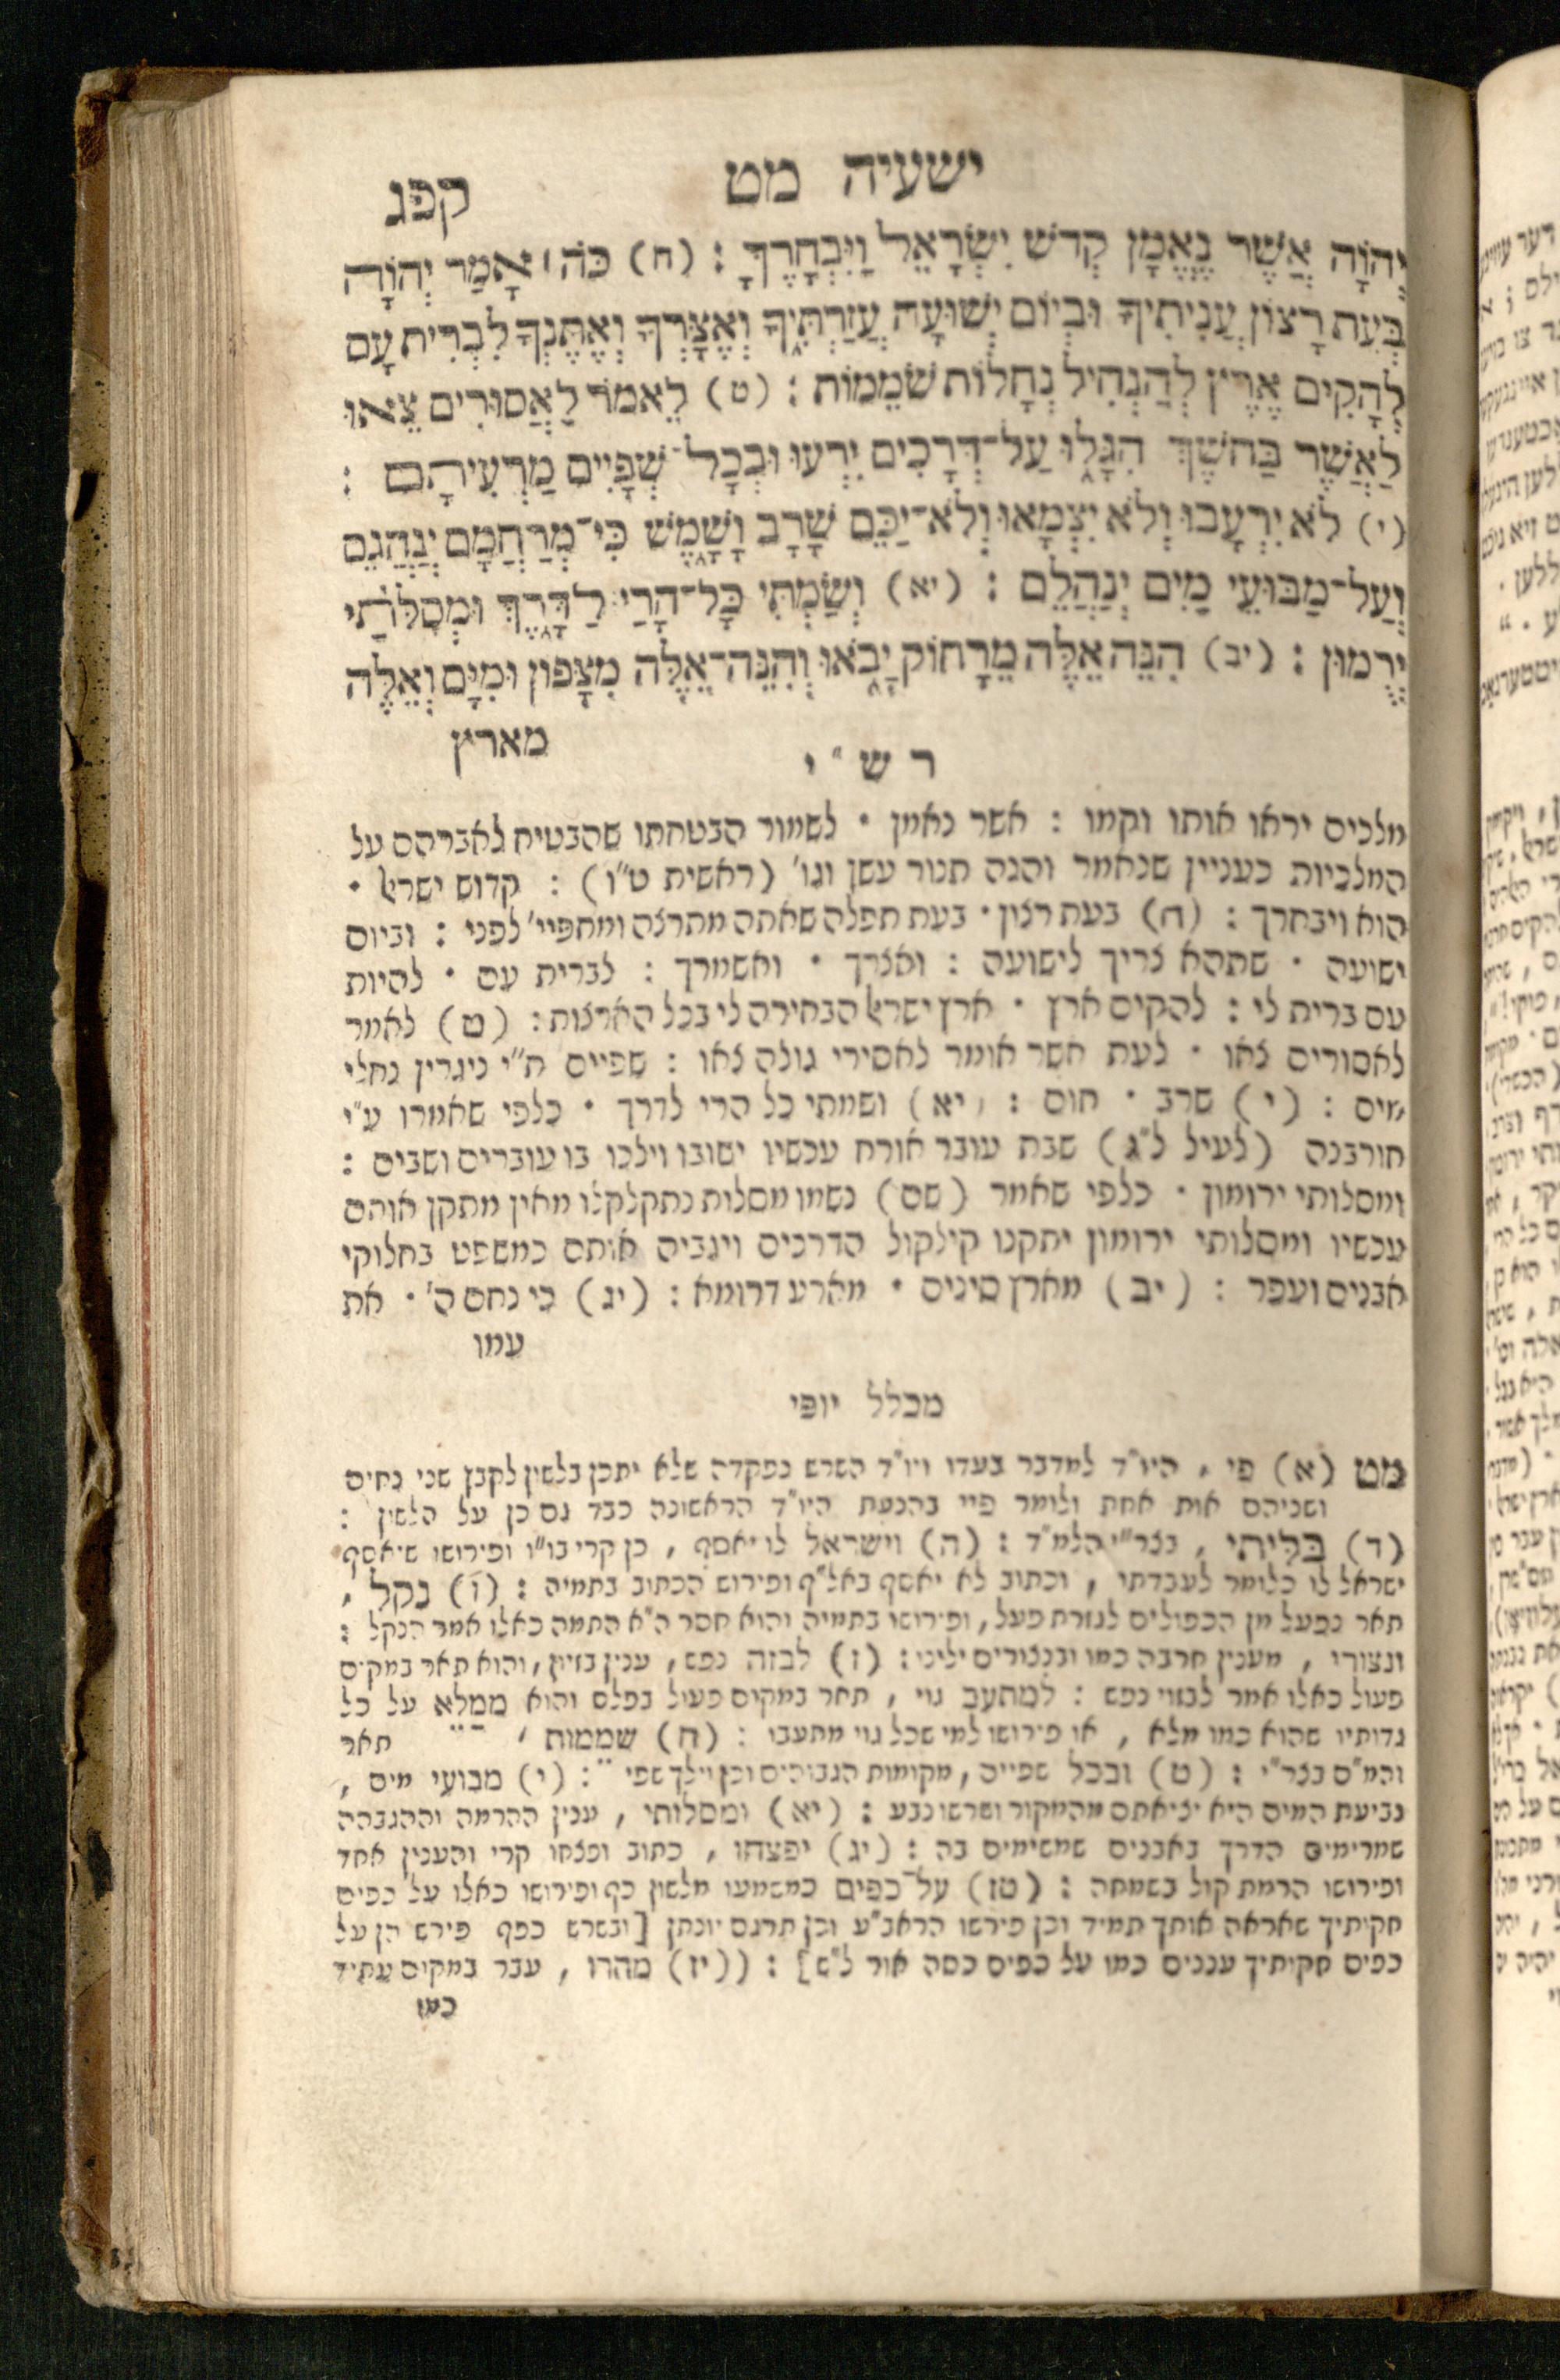 ישעיה מט קפג
יְהוָֹה אֲשֶׁר נֶאֱמָן קְדשׁ יִשְׂרָאֵל וַיִּבְחָרֶךָּ : (ח) כֹּה ׀ אָמַר יְהוָֹה
בְּעֵת רָצוֹן עֲנִיתִיךָ וּבְיוֹם יְשׁוּעָה עֲזַרְתִּיךָ וְאֶצָּרְךָ וְאֶתֶּנְךָ לִבְרִית עָם
לְהָקִים אֶרֶץ לְהַנְחִיל נְחָלוֹת שֹׁמֵמוֹת : (ט) לֵאמֹר לַאֲסוּרִים צֵאוּ
לַאֲשֶׁר בַּחשֶׁךְ הִגָּלוּ עַל־דְּרָכִים יִרְעוּ וּבְכָל־שְׁפָיִים מַרְעִיתָם :
(י) לֹא יִרְעָבוּ וְלֹא יִצְמָאוּ וְלֹא־יַכֵּם שָׁרָב וָשָׁמֶשׁ כִּי־מְרַחֲמָם יְנַהֲגֵם
וְעַל־מַבּוּעֵי מַיִם יְנַהֲלֵם : (יא) וְשַׂמְתִּי כָל־הָרַי לַדָּרֶךְ וּמְסִלֹּתַי
יְרֻמוּן : (יב) הִנֵּה אֵלֶּה מֵרָחוֹק יָבֹאוּ וְהִנֵּה־אֵלֶּה מִצָּפוֹן וּמִיָּם וְאֵלֶּה
מארץ
ר ש ״ י
מלכים יראו אותו וקמו : אשר נאמן • לשמור הבטחתו שהבטיח לאברהם על
המלכיות כעניין שנאמר והנה תנור עשן וגו' (ראשית ט״ו) : קדוש ישראל •
הוא ויבחרך : (ח) בעת רצון • בעת תפלה שאתה מתרצה ומתפיי' לפני : וביום
ישועה • שתהא צריך לישועה : ואצרך • ואשמרך : לברית עם • להיות
עם ברית לי : להקים ארץ • ארץ ישראל הבחירה לי בכל הארצות : (ט) לאמר
לאסורים צאו • לעת אשר אומר לאסירי גולה צאו : שפיים ת״י ניגרין נחלי
מים : (י) שרב • חום : (יא) ושמתי כל הרי לדרך • כלפי שאמרו ע״י
חורבנה (לעיל ל״ג) שבת עובר אורח עכשיו ישובו וילכו בו עוברים ושבים :
ומסלותי ירומון • כלפי שאמר (שם) נשמו מסלות נתקלקלו מאין מתקן אותם
עכשיו ומסלותי ירומון יתקנו קילקול הדרכים ויגביה אותם כמשפט בחלוקי
אבנים ועפר : (יב) מארץ סינים • מארע דרומא : (יג) כי נחם ה' • את
עמו
מכלל יופי
מט (א) פי , היו״ד למדבר בעדו ויו״ד השרש נפקדה שלא יתכן בלשון לקבץ שני נחים
ושניהם אות אחת ולומר פיי בהנעת היו״ד הראשונה כבד גם כן על הלשון :
(ד) בליתי , בצר״י הלמ״ד : (ה) וישראל לו יאסף , כן קרי בו״ו ופירושו שיאסף
ישראל לו כלומר לעבדתו , וכתוב לא יאסף באל״ף ופירוש הכתוב בתמיה : (ו) נקל ,
תאר נפעל מן הכפולים לגזרת פעל , ופירושו בתמיה והוא חסר ה״א התמה כאלו אמר הנקל :
ונצורי , מענין חרבה כמו ובנצורים ילינו : (ז) לבזה נפש , ענין בזיון , והוא תאר במקום
פעול כאלו אמר לבזוי נפש : למתעב גוי , תאר במקום פעול בפלס והוא ממלא על כל
גדותיו שהוא כמו מלא , או פירושו למי שכל גוי מתעבו : (ח) שממות , תאר
והמ״ם בצר״י : (ט) ובכל שפייה , מקומות הגבוהים וכן וילך שפי : (י) מבועי מים ,
נביעת המים היא יציאתם מהמקור ושרשו נבע : (יא) ומסלותי , ענין ההרמה וההגבהה
שמרימים הדרך באבנים שמשימים בה : (יג) יפצחו , כתוב ופצחו קרי והענין אחד
ופירושו הרמת קול בשמחה : (טז) על־כפים כמשמעו מלשון כף ופירושו כאלו על כפים
חקותיך שאראה אותך תמיד וכן פירשו הראב״ע וכן תרגם יונתן [ובשרש כפף פירש הן על
כפים חקותיך עננים כמו על כפים כסה אור ל״ש] : (יז) מהרו , עבר במקום עתיד
כמו